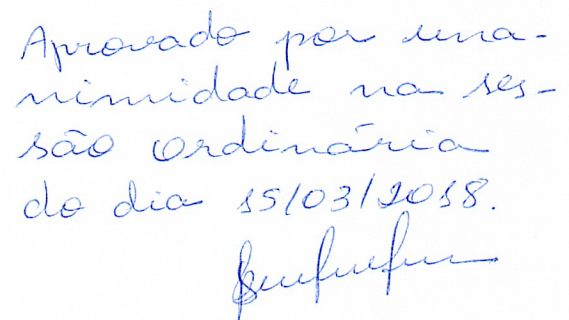 Aprovado por una-
nimidade na ses-
são ordinária
do dia 15/03/2018.